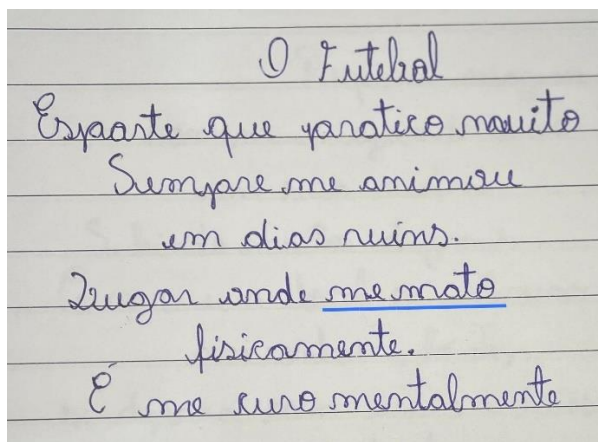 O Futebol
Esporte que pratico muito
Sempre me animou
em dias ruins.
Lugar onde me mato
fisicamente.
É me curo mentalmente